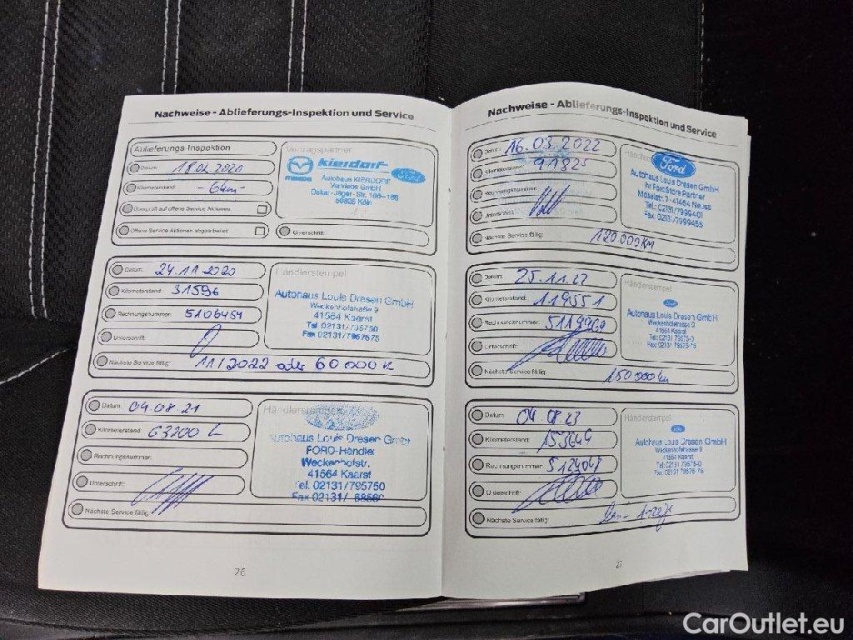 Nachweise - Ablieferungs-Inspektion und Service
Ablieferungs-Inspektion
Datum: 18.02.2020
Kilometerstand: - 6km -
Überprüft auf offene Service Aktionen
Offene Service Aktionen abgearbeitet
Vertragspartner
mazda kierdorf Ford
Autohaus KIERDORF
Vertriebs GmbH
Oskar-Jäger-Str. 166-168
50825 Köln
Unterschrift:
Datum: 24.11.2020
Kilometerstand: 31596
Rechnungsnummer: 5106454
Unterschrift:
Nächste Service fällig: 11/2022 oder 60 000 K
Händlerstempel
Autohaus Louis Dresen GmbH
41564 Kaarst
Tel. 02131/795750
Fax 02131/7957575
Datum: 04.08.21
Kilometerstand: 63200
Rechnungsnummer:
Unterschrift:
Nächste Service fällig:
Händlerstempel
Autohaus Louis Dresen GmbH
FORD-Händler
Weckenhofstr.
41564 Kaarst
Tel. 02131/795750
Fax 02131/
26
Nachweise - Ablieferungs-Inspektion und Service
Datum: 16.03.2022
Kilometerstand: 91825
Rechnungsnummer:
Unterschrift:
Nächste Service fällig: 120 000 Km
Ford
Autohaus Louis Dresen GmbH
Ihr FordStore Partner
41464 Neuss
Tel.: 02131/7999401
Datum: 25.11.22
Kilometerstand: 119551
Rechnungsnummer:
Unterschrift:
Nächste Service fällig: 150 000 km
Händlerstempel
Autohaus Louis Dresen GmbH
41564 Kaarst
Datum: 04.08.23
Kilometerstand:
Rechnungsnummer:
Unterschrift:
Nächste Service fällig:
Händlerstempel
Autohaus Louis Dresen GmbH
41564 Kaarst
CarOutlet.eu